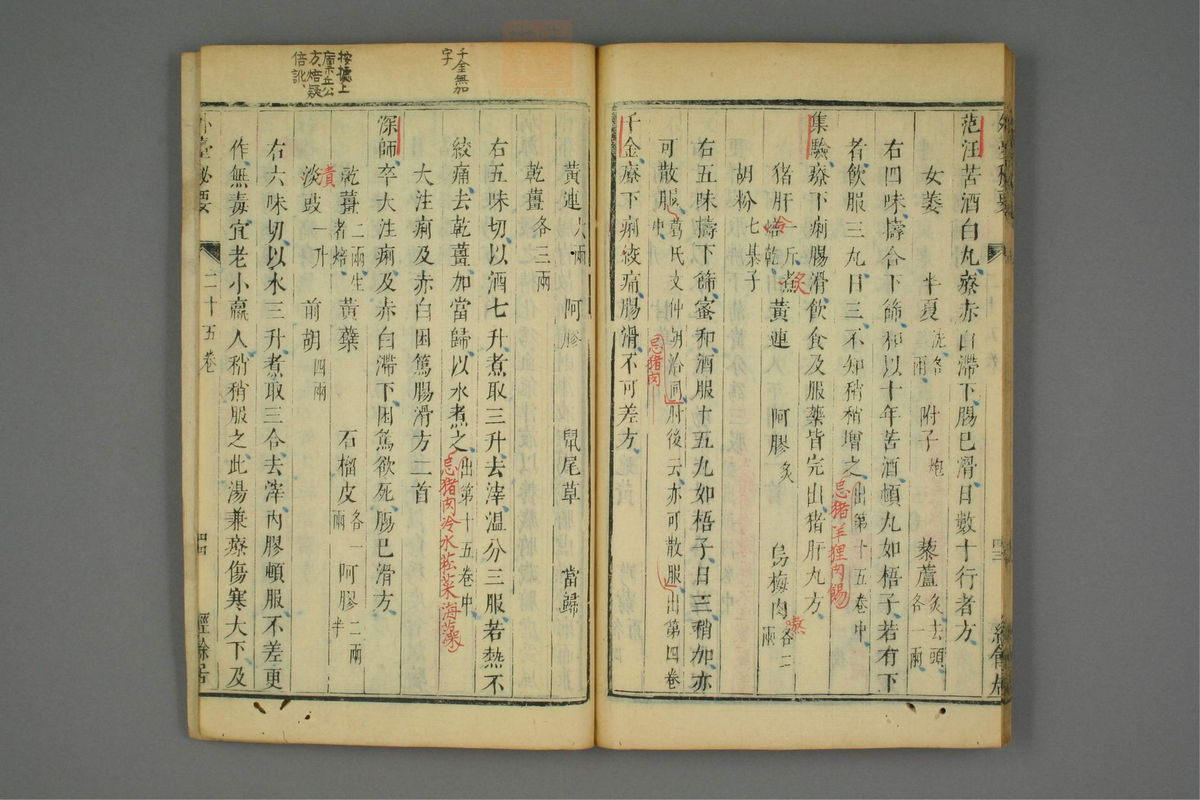 范汪苦酒白丸療赤白滯下腸已滑日數十行者方
女萎 半夏洗各二兩 附子炮 藜蘆炙去頭各一兩
右四味擣合下篩和以十年苦酒頓丸如梧子若有下
者飲服三丸日三不知稍稍增之出第十五卷中 忌猪羊狸肉餳
集驗療下痢腸滑飲食及服藥皆完出猪肝丸方
猪肝一斤煮焙乾 黃連 阿膠炙 烏梅肉各二兩
胡粉七棊子
右五味擣下篩蜜和酒服十五丸如梧子日三稍加亦
可散服葛氏文仲胡洽同肘後云亦可散服出第四卷中
忌猪肉
千金療下痢絞痛腸滑不可差方
四三
經餘居
千金無加字
黃連六兩 阿膠 鼠尾草 當歸
乾薑各三兩
右五味切以酒七升煮取三升去滓溫分三服若熱不
絞痛去乾薑加當歸以水煮之出第十五卷中 忌猪肉冷水菘菜海藻
大注痢及赤白困篤腸滑方二首
深師卒大注痢及赤白滯下困篤欲死腸已滑方
乾薑二兩生者焙 黃蘗 石榴皮各一兩 阿膠二兩半
淡豉一升 前胡四兩
右六味切以水三升煮取三合去滓內膠頓服不差更
作無毒宜老小羸人稍稍服之此湯兼療傷寒大下及
外臺秘要
二十五卷
四四
經餘居